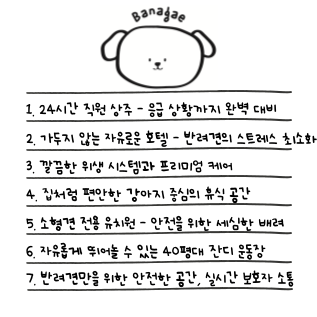 Banagae
1. 24시간 직원 상주 - 응급 상황까지 완벽 대비
2. 가두지 않는 자유로운 호텔 - 반려견의 스트레스 최소화
3. 깔끔한 위생 시스템과 프리미엄 케어
4. 집처럼 편안한 강아지 중심의 휴식 공간
5. 소형견 전용 유치원 - 안전을 위한 세심한 배려
6. 자유롭게 뛰어놀 수 있는 40평대 잔디 운동장
7. 반려견만을 위한 안전한 공간, 실시간 보호자 소통